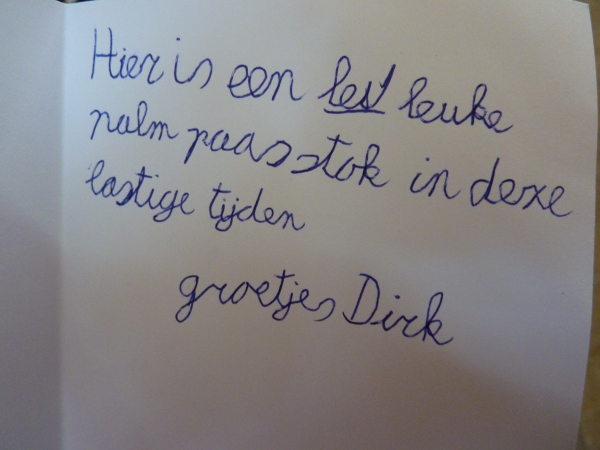 Hier is een les! leuke
palm paasstok in dexe
lastige tijden
groetjes Dirk